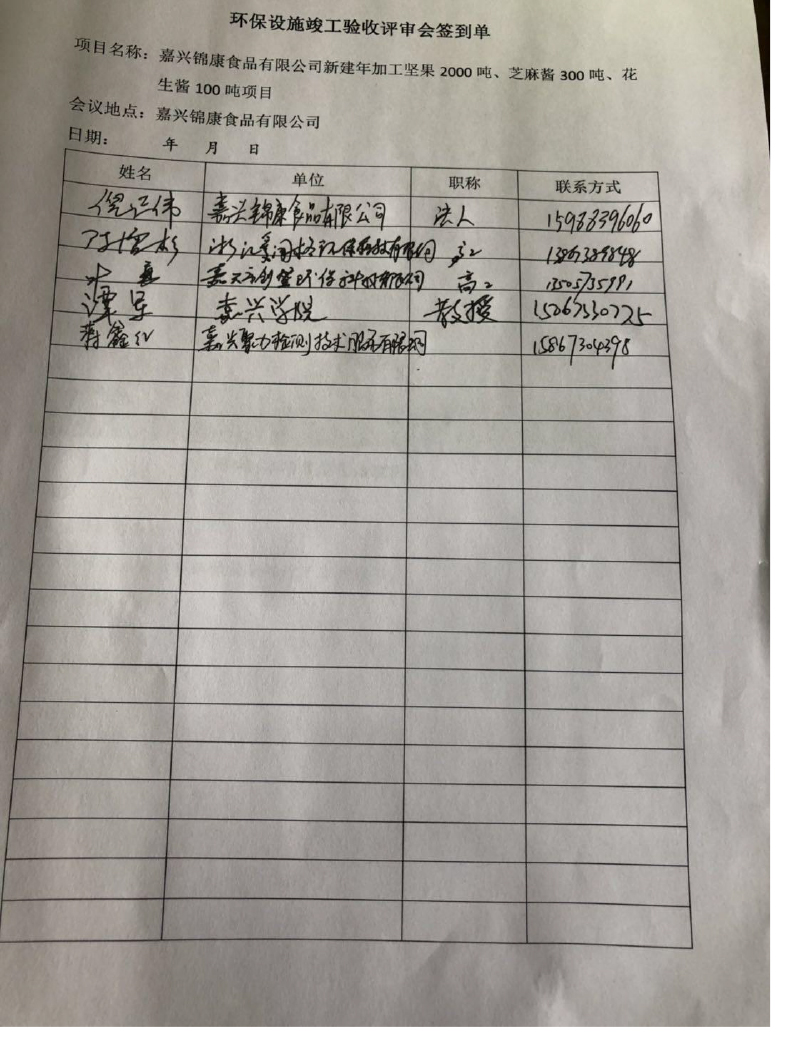 环保设施竣工验收评审会签到单
项目名称：嘉兴锦康食品有限公司新建年加工坚果 2000 吨、芝麻酱 300 吨、花
生酱 100 吨项目
会议地点：嘉兴锦康食品有限公司
日期： 年 月 日
姓名 单位 职称 联系方式
伟 嘉兴锦康食品有限公司 法人 15988396060
浙江 环保科技有限公司
嘉 环保科技有限公司 高工
谭军 嘉兴学院 教授 15267330725
蒋鑫红 嘉兴聚力检测技术服务有限公司 15867304398